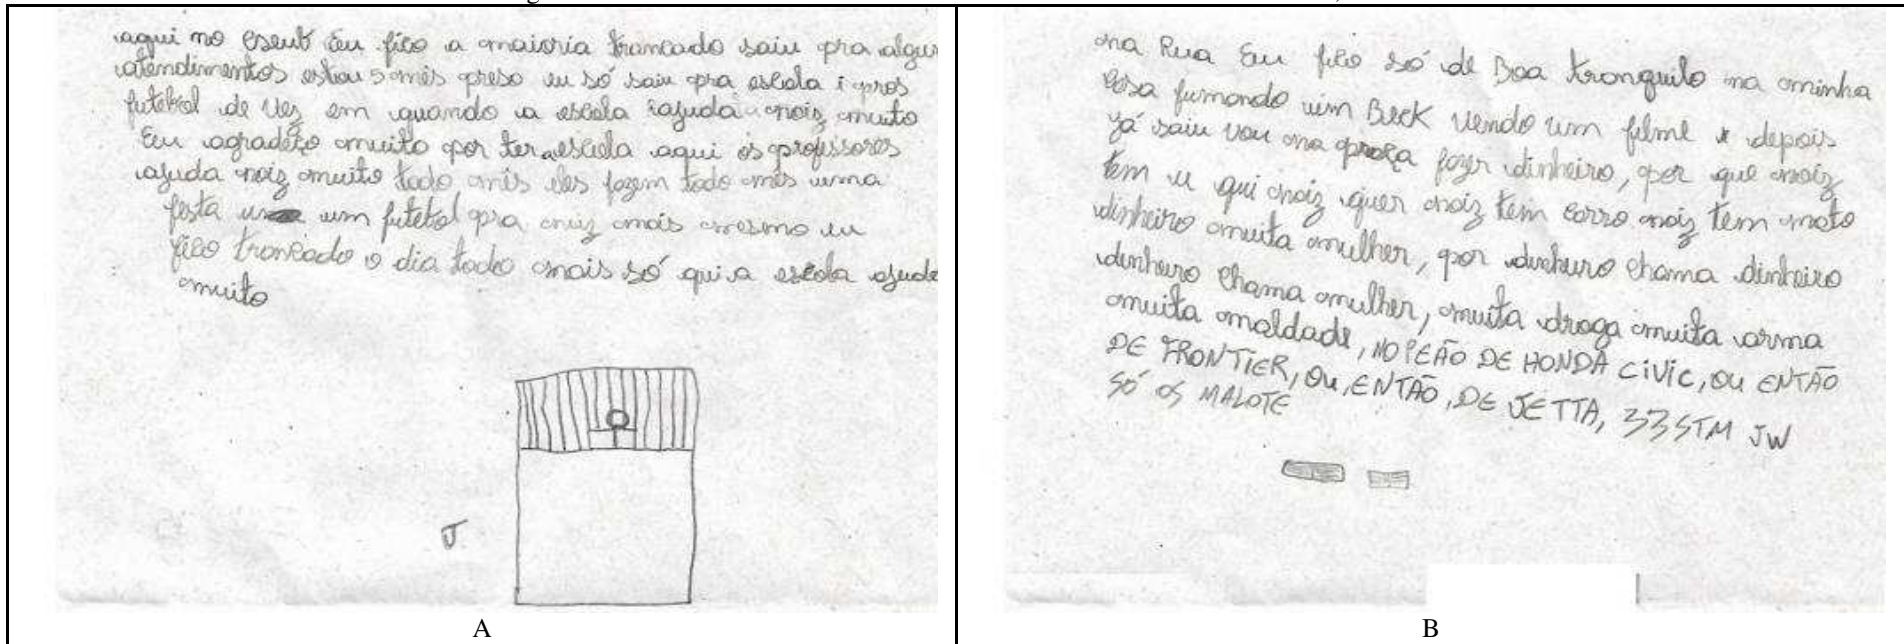 aqui no eseub Eu fico a maioria trancado saiu pra algun
atendimentos estou 5 mês preso eu só saiu pra escola i pros
futebol de vez em quando a escola ajuda noiz muito
Eu agradeço muito por ter a escola aqui os professores
ajuda noiz muito todo mês eles fazem todo mês uma
festa um futebol pra noiz mais mesmo eu
fico trancado o dia todo mais só qui a escola ajuda
muito
J
A
na Rua Eu fico só de Boa tranquilo na minha
casa fumando um Beck vendo um filme e depois
já saiu vou na praça fazer dinheiro, por que noiz
tem u qui noiz quer noiz tem carro noiz tem moto
dinheiro muita mulher, por dinheiro chama dinheiro
dinheiro chama mulher, muita droga muita arma
muita maldade, NO PEÃO DE HONDA CIVIC, OU ENTÃO
DE FRONTIER, OU, ENTÃO, DE JETTA, 33 STM JW
SÓ OS MALOTE
B